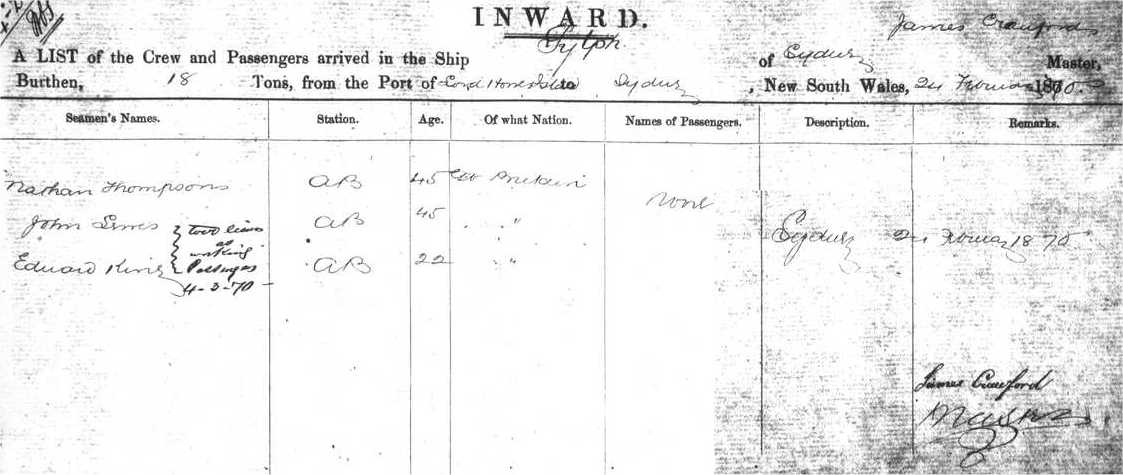 INWARD.
James Crawford
A LIST of the Crew and Passengers arrived in the Ship Sylph of Sydney Master,
Burthen, 18 Tons, from the Port of Lord Howe Sydney, New South Wales, 24 1870
Seamen's Names. Station. Age. Of what Nation. Names of Passengers. Description. Remarks.
Nathan Thompson AB 45 Gt Britain None
John AB 45 " Sydney 24 1870
Edward King AB 22 "
as
working
Passengers
4-3-70
James Crawford
Master